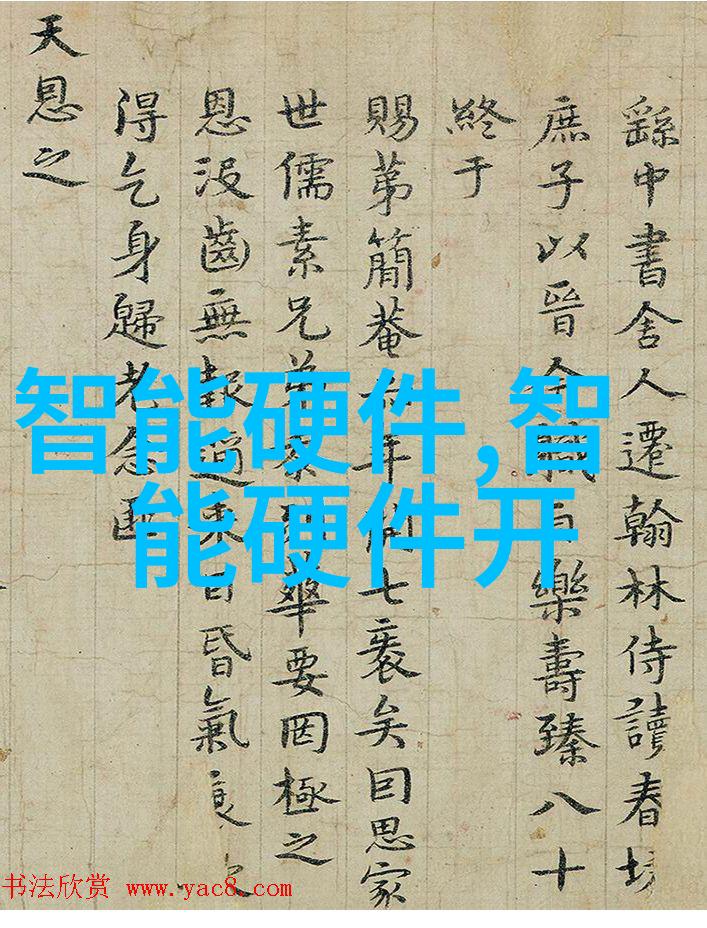 繇中書舍人遷翰林侍讀春坊
庶子以晉職樂壽臻八十
終于
賜苐簡菴年七袠矣囙思家
世儒素兄弟華要罔極之
恩沒齒無報日昏氣
得乞身歸老念
天恩之
智能硬件,智
能硬件开
书法欣赏 www.yac8.com